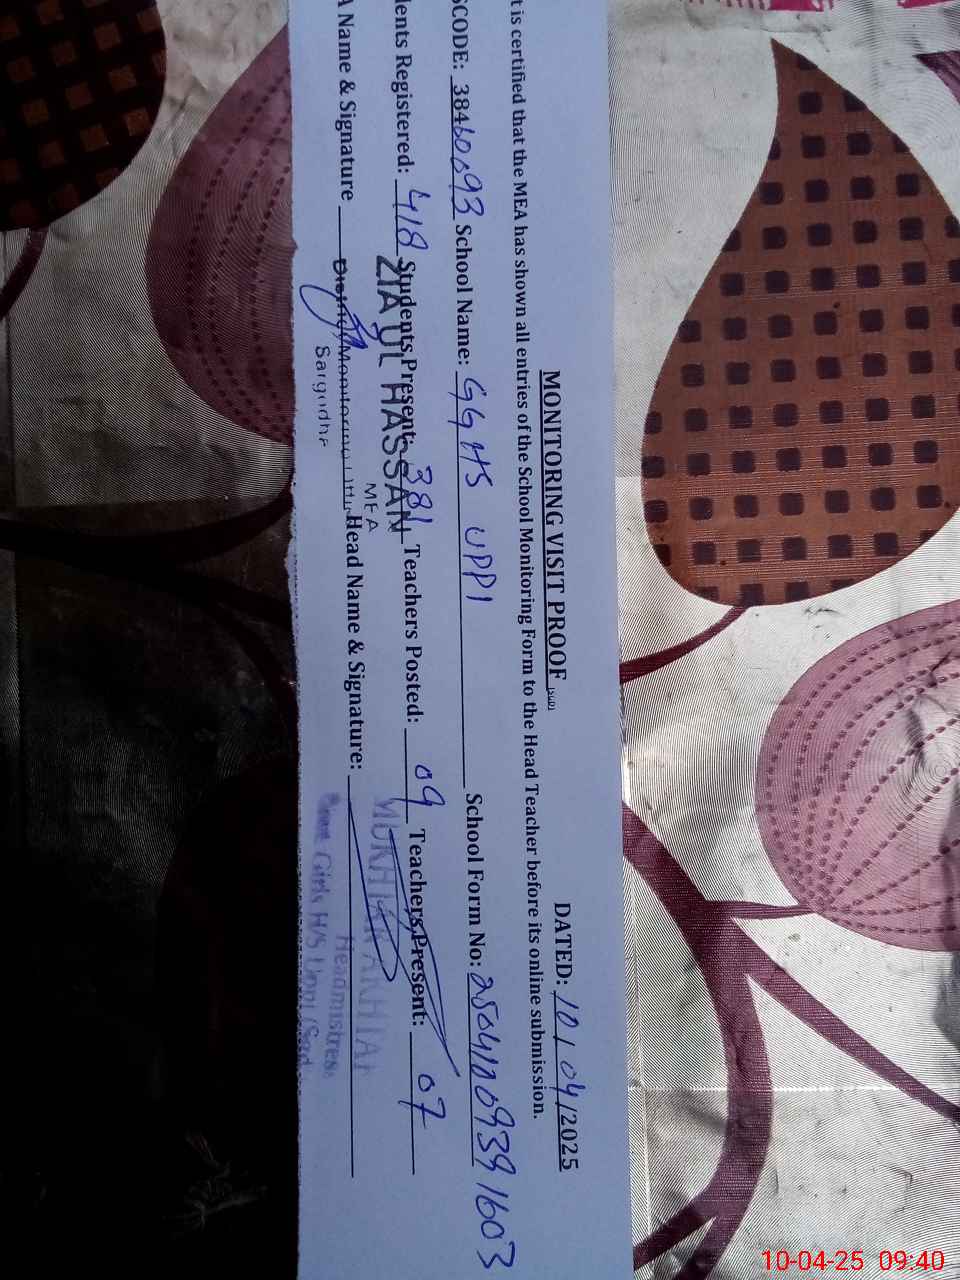 MONITORING VISIT PROOF [SGD] DATED: 10/04/2025
t is certified that the MEA has shown all entries of the School Monitoring Form to the Head Teacher before its online submission.
SCODE: 38460093 School Name: GGHS UPPI School Form No: 25041009391603
dents Registered: 418 Students Present: 381 Teachers Posted: 09 Teachers Present: 07
ZIA UL HASSAN
MEA
A Name & Signature Head Name & Signature:
Headmistress
Sargodha
Girls H/S Uppi
10-04-25 09:40